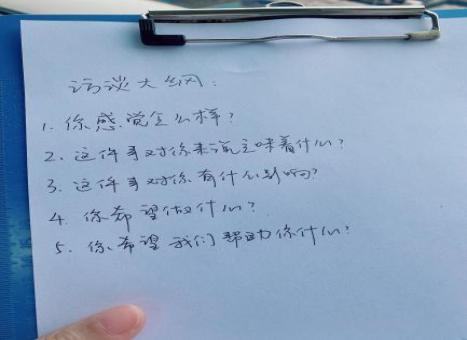 访谈大纲：
1. 你感觉怎么样？
2. 这件事对你来说意味着什么？
3. 这件事对你有什么影响？
4. 你希望做什么？
5. 你希望我们帮助你什么？